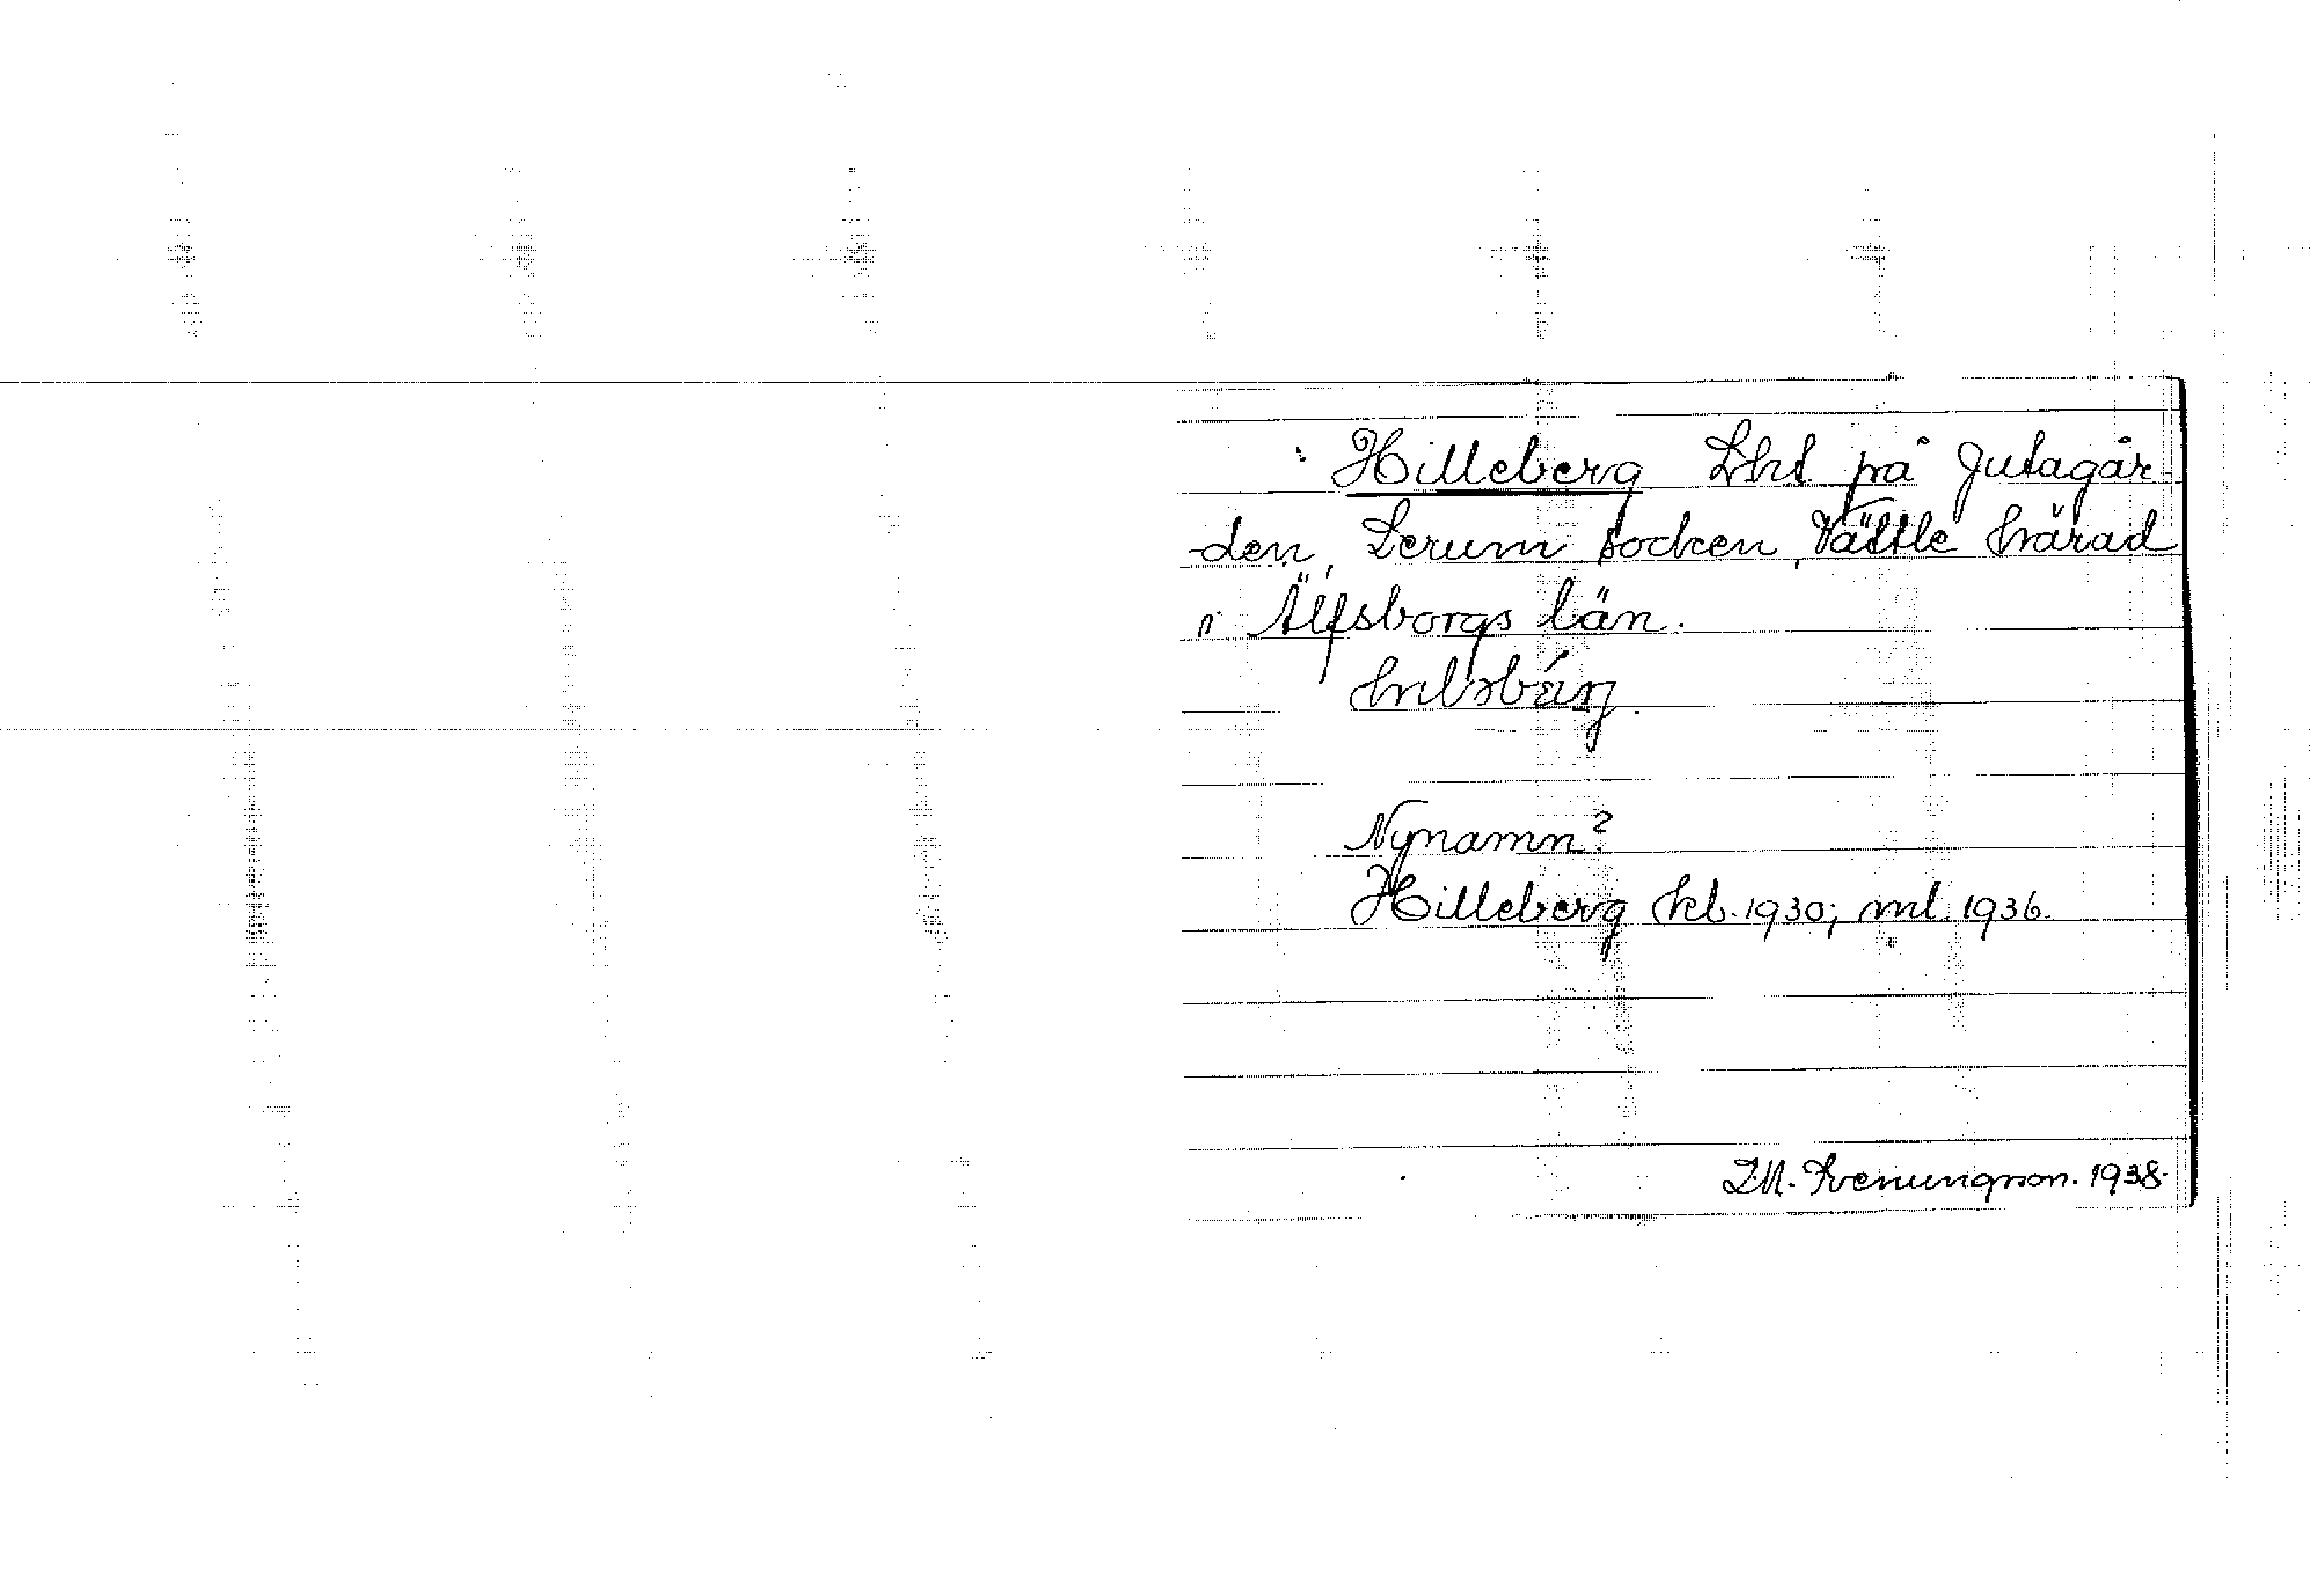 Hilleberg Lht på Jutagår-
den, Lerum socken, Vättle härad
i Älfsborgs län.
Nynamn?
Hilleberg kb. 1930; ml. 1936.
I.M. Svenungsson. 1938.